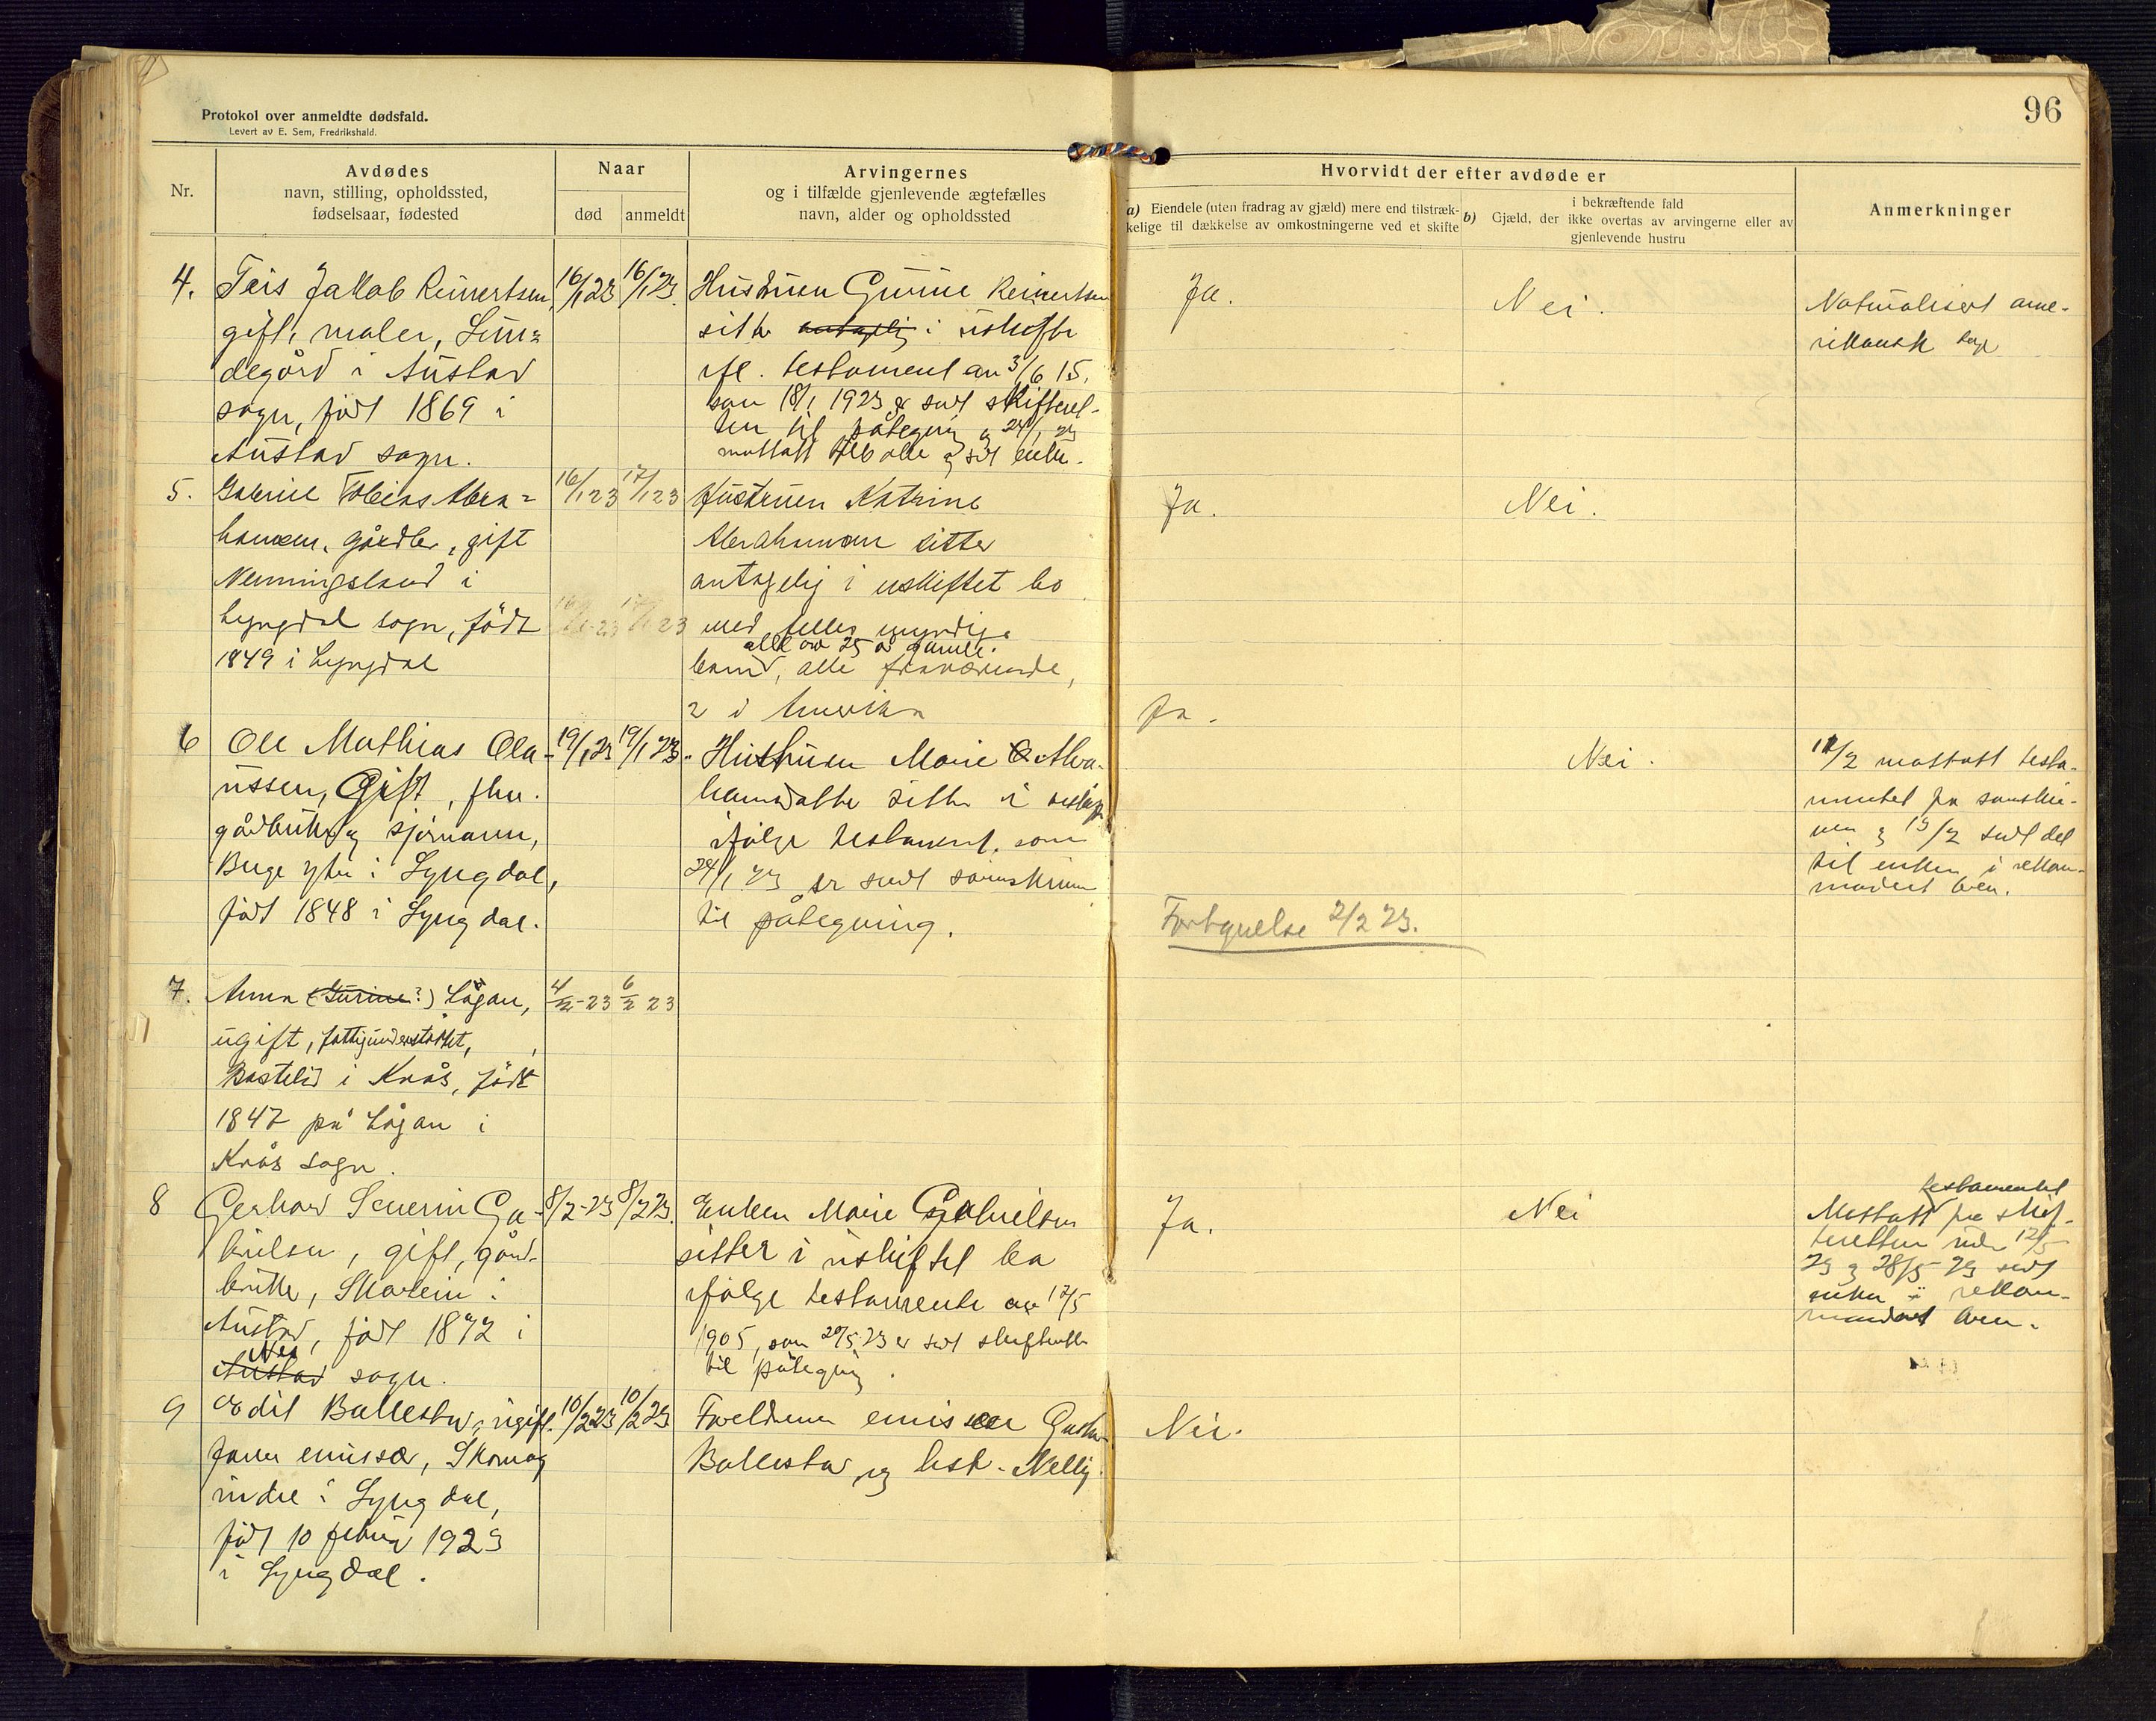 96
Protokol over anmeldte dødsfald.
Levert av E. Sem, Fredrikshald.
Nr.
Avdødes
navn, stilling, opholdssted,
fødselsaar, fødested
Naar
død
anmeldt
Arvingernes
og i tilfælde gjenlevende ægtefælles
navn, alder og opholdssted
Hvorvidt der efter avdøde er
a) Eiendele (uten fradrag av gjæld) mere end tilstræk-
kelige til dækkelse av omkostningerne ved et skifte
i bekræftende fald
b) Gjæld, der ikke overtas av arvingerne eller av
gjenlevende hustru
Anmerkninger
4.
Teis Jakob Reinertsen,
gift, maler,
degård i Austad
sogn, født 1869 i
Austad sogn.
16/1 23
16/1 23.
Hustruen Gurine Reinertsen
sitter antagelig i uskiftet
ifl. testament av 3/6 15.
som 18/1 1923 er sendt skifteret-
ten til påtegning og 24/1 23
mottatt tilbake og sendt enken.
Ja.
Nei.
Naturalisert ame-
rikansk
5.
Gabriel Tobias Abra=
hamsen, gårdbr., gift
Nenningsland i
Lyngdal sogn, født
1849 i Lyngdal
16/1 23
17/1 23
Hustruen Katrine
Abrahamsen sitter
antagelig i uskiftet bo
med felles myndige
alle over 25 år gamle.
barn, alle fraværende,
2 i Amerika
Ja.
Nei.
6
Ole Mathias Ola-
ussen, Gift, fhv.
gårdbruker og sjømann,
Berge ytre i Lyngdal,
født 1848 i Lyngdal.
19/1 23
19/1 23.
Hustruen Marie Abra-
hamsdatter sitter i
ifølge testament, som
24/1 23 er sendt
til påtegning.
Ja.
Nei.
Fortegnelse 2/2 23.
12/2 mottatt testa-
mentet fra
og 13/2 sendt det
til enken i rekom-
mandert brev.
7.
Anna (Turine?) Lågan,
ugift, fattigunderstøttet,
Bastelid i Kvås, født
1847 på Lågan i
Kvås sogn.
4/2-23
6/2 23
8
Gerhard Severin Ga-
brielsen, gift, gård-
bruker, Skarein i
Austad, født 1872 i
Nes,
Austad sogn.
8/2-23
8/2 23.
Enken Marie Gabrielsen
sitter i uskiftet bo
ifølge testamente av 17/5
1905, som 20/5 23 er sendt skifteretten
til påtegning.
Ja.
Nei
testamentet
Mottatt fra skif-
teretten
23 og 28/5 23 sendt
enken i rekom-
mandert brev.
9
Edit Ballestad, ugift.
Faren emissær, Skomag
indre i Lyngdal,
født 10 februar 1923
i Lyngdal.
10/2 23
10/2 23
Foreldrene emissær Gustav
Ballestad og hust. Nelly.
Nei.